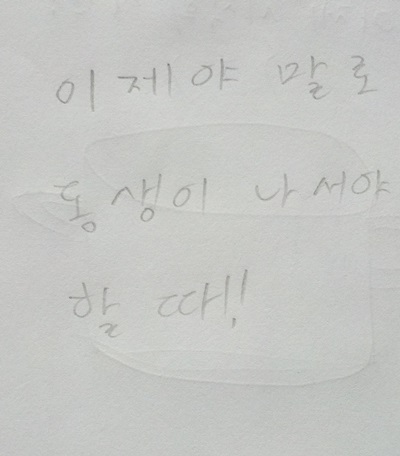 이제야 말로
동생이 나서야
할 때!